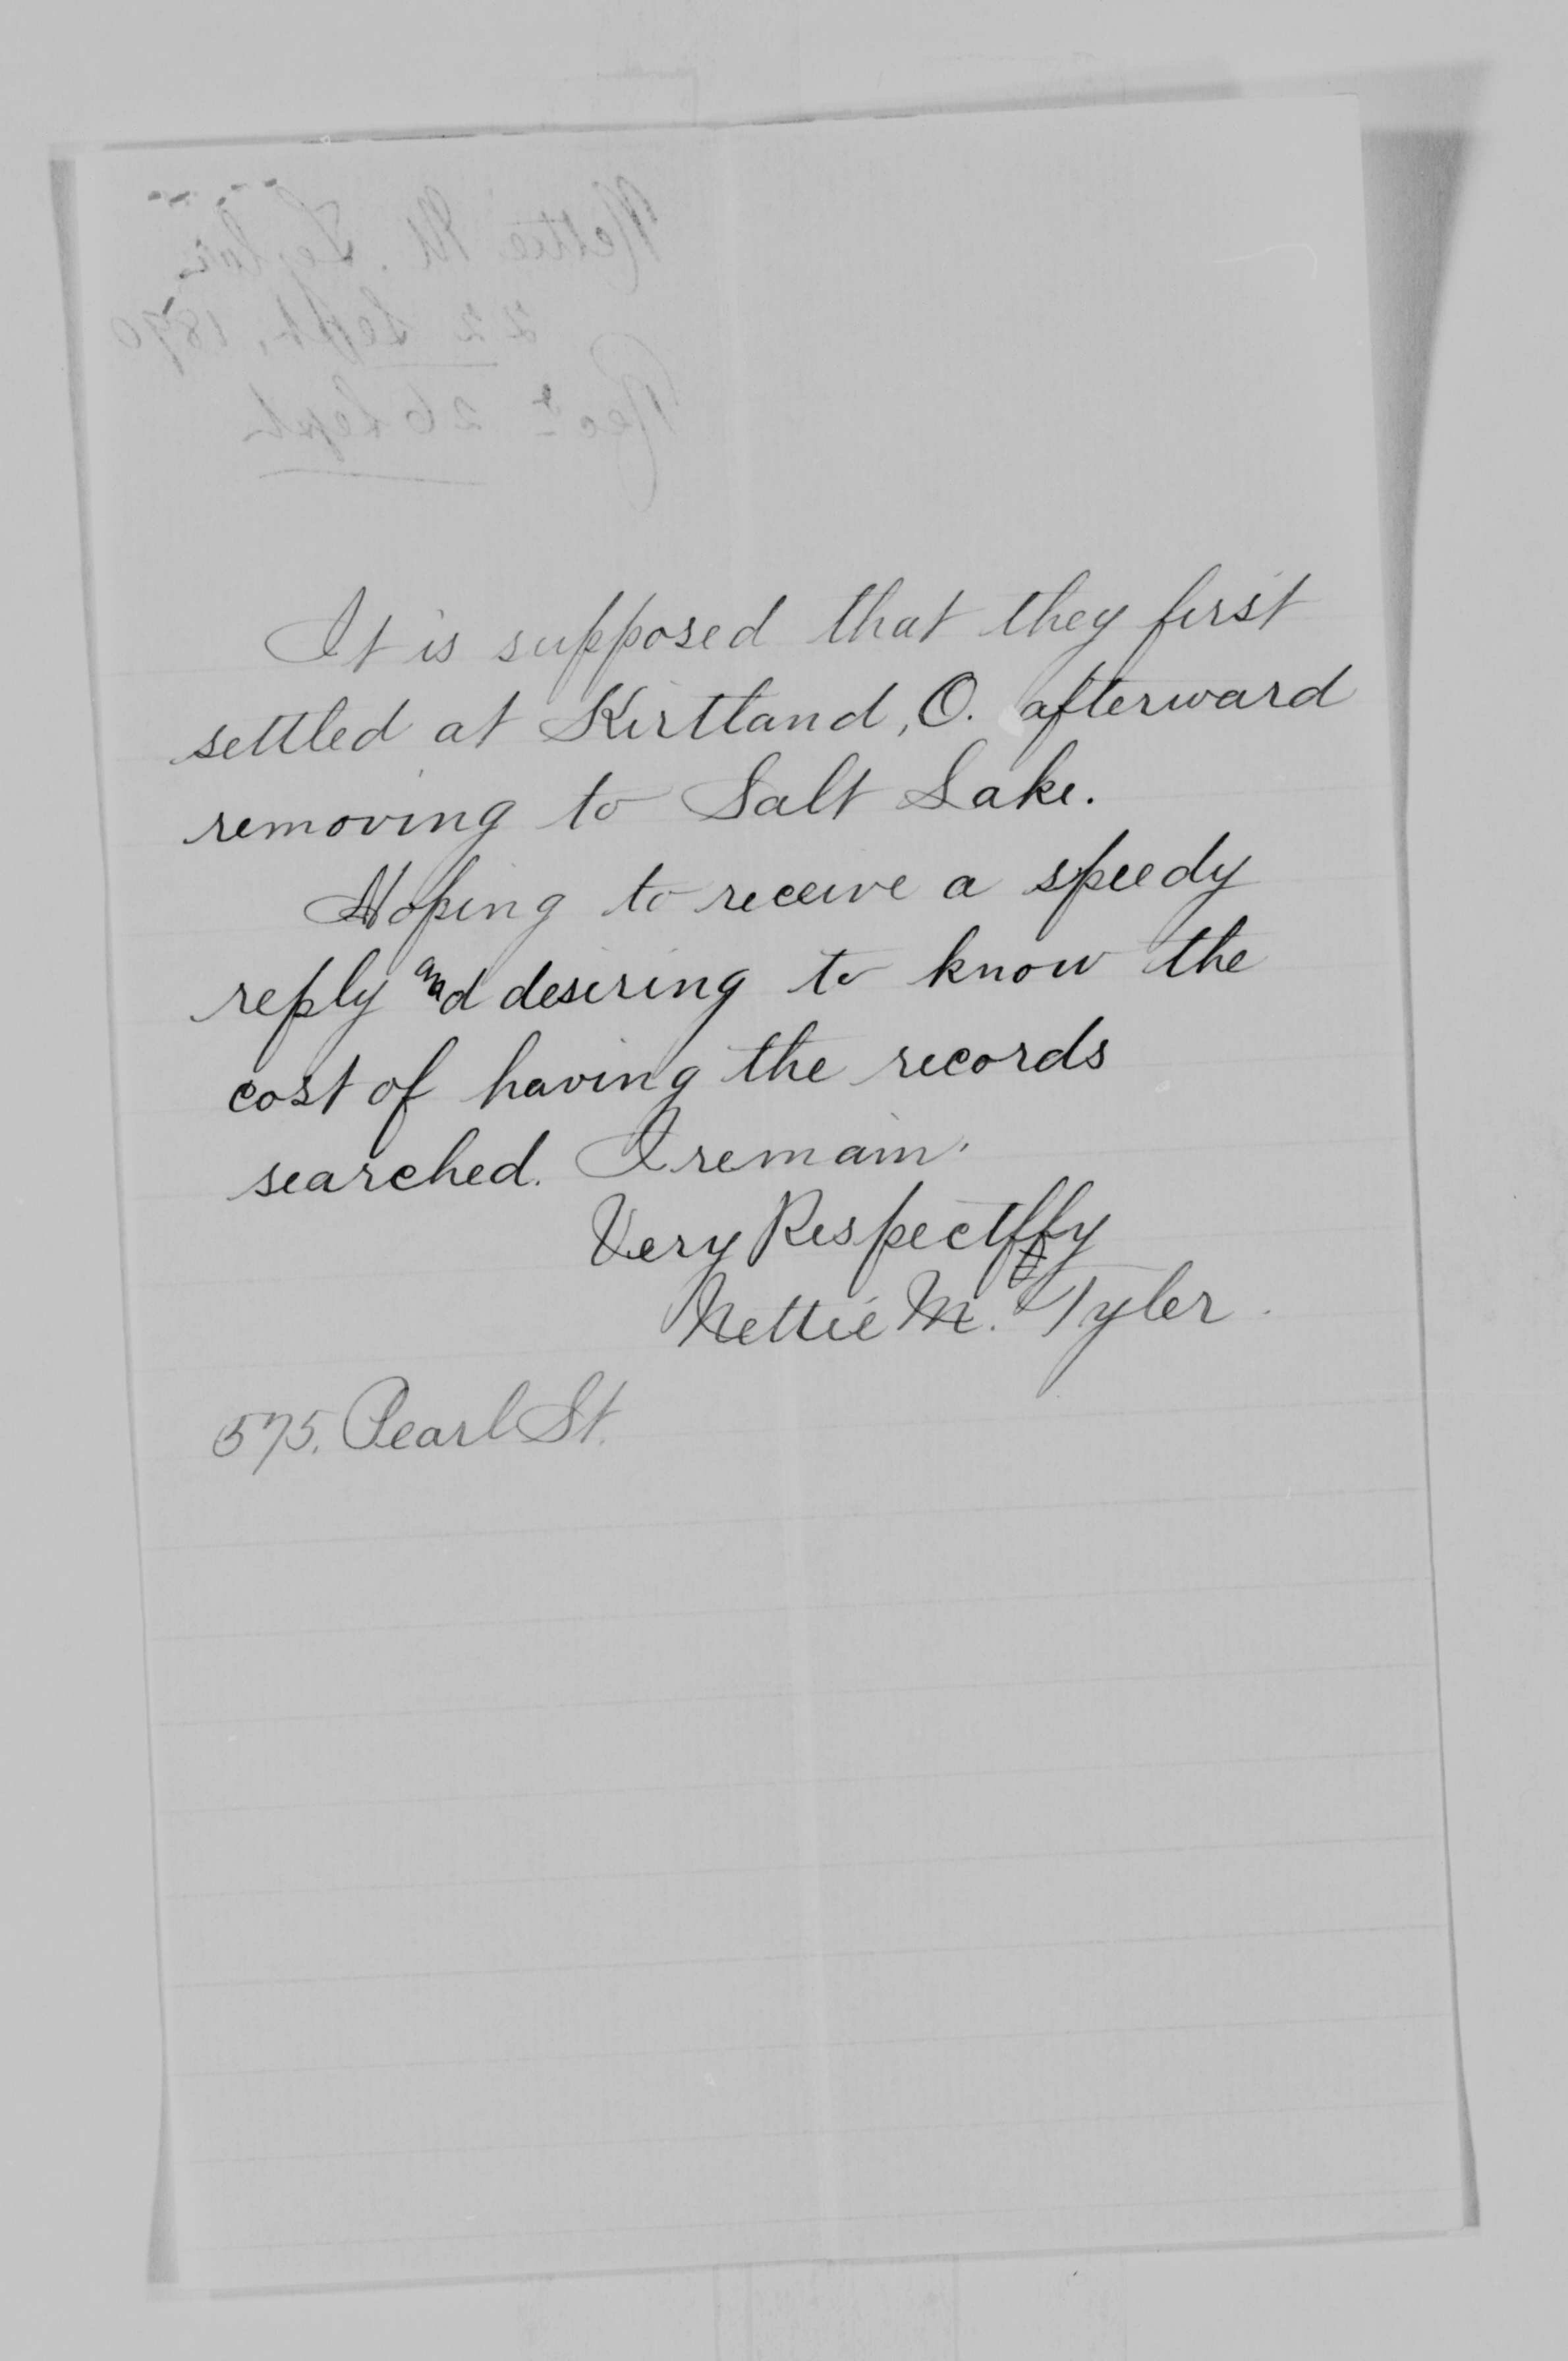 Nettie M. Tyler
22 Sept, 1890
Recd 26 Sept
It is supposed that they first
settled at Kirtland, O. afterward
removing to Salt Lake.
Hoping to receive a speedy
reply and desiring to know the
cost of having the records
searched. I remain.
Very Respectfly
Nettie M. Tyler.
575. Pearl St.